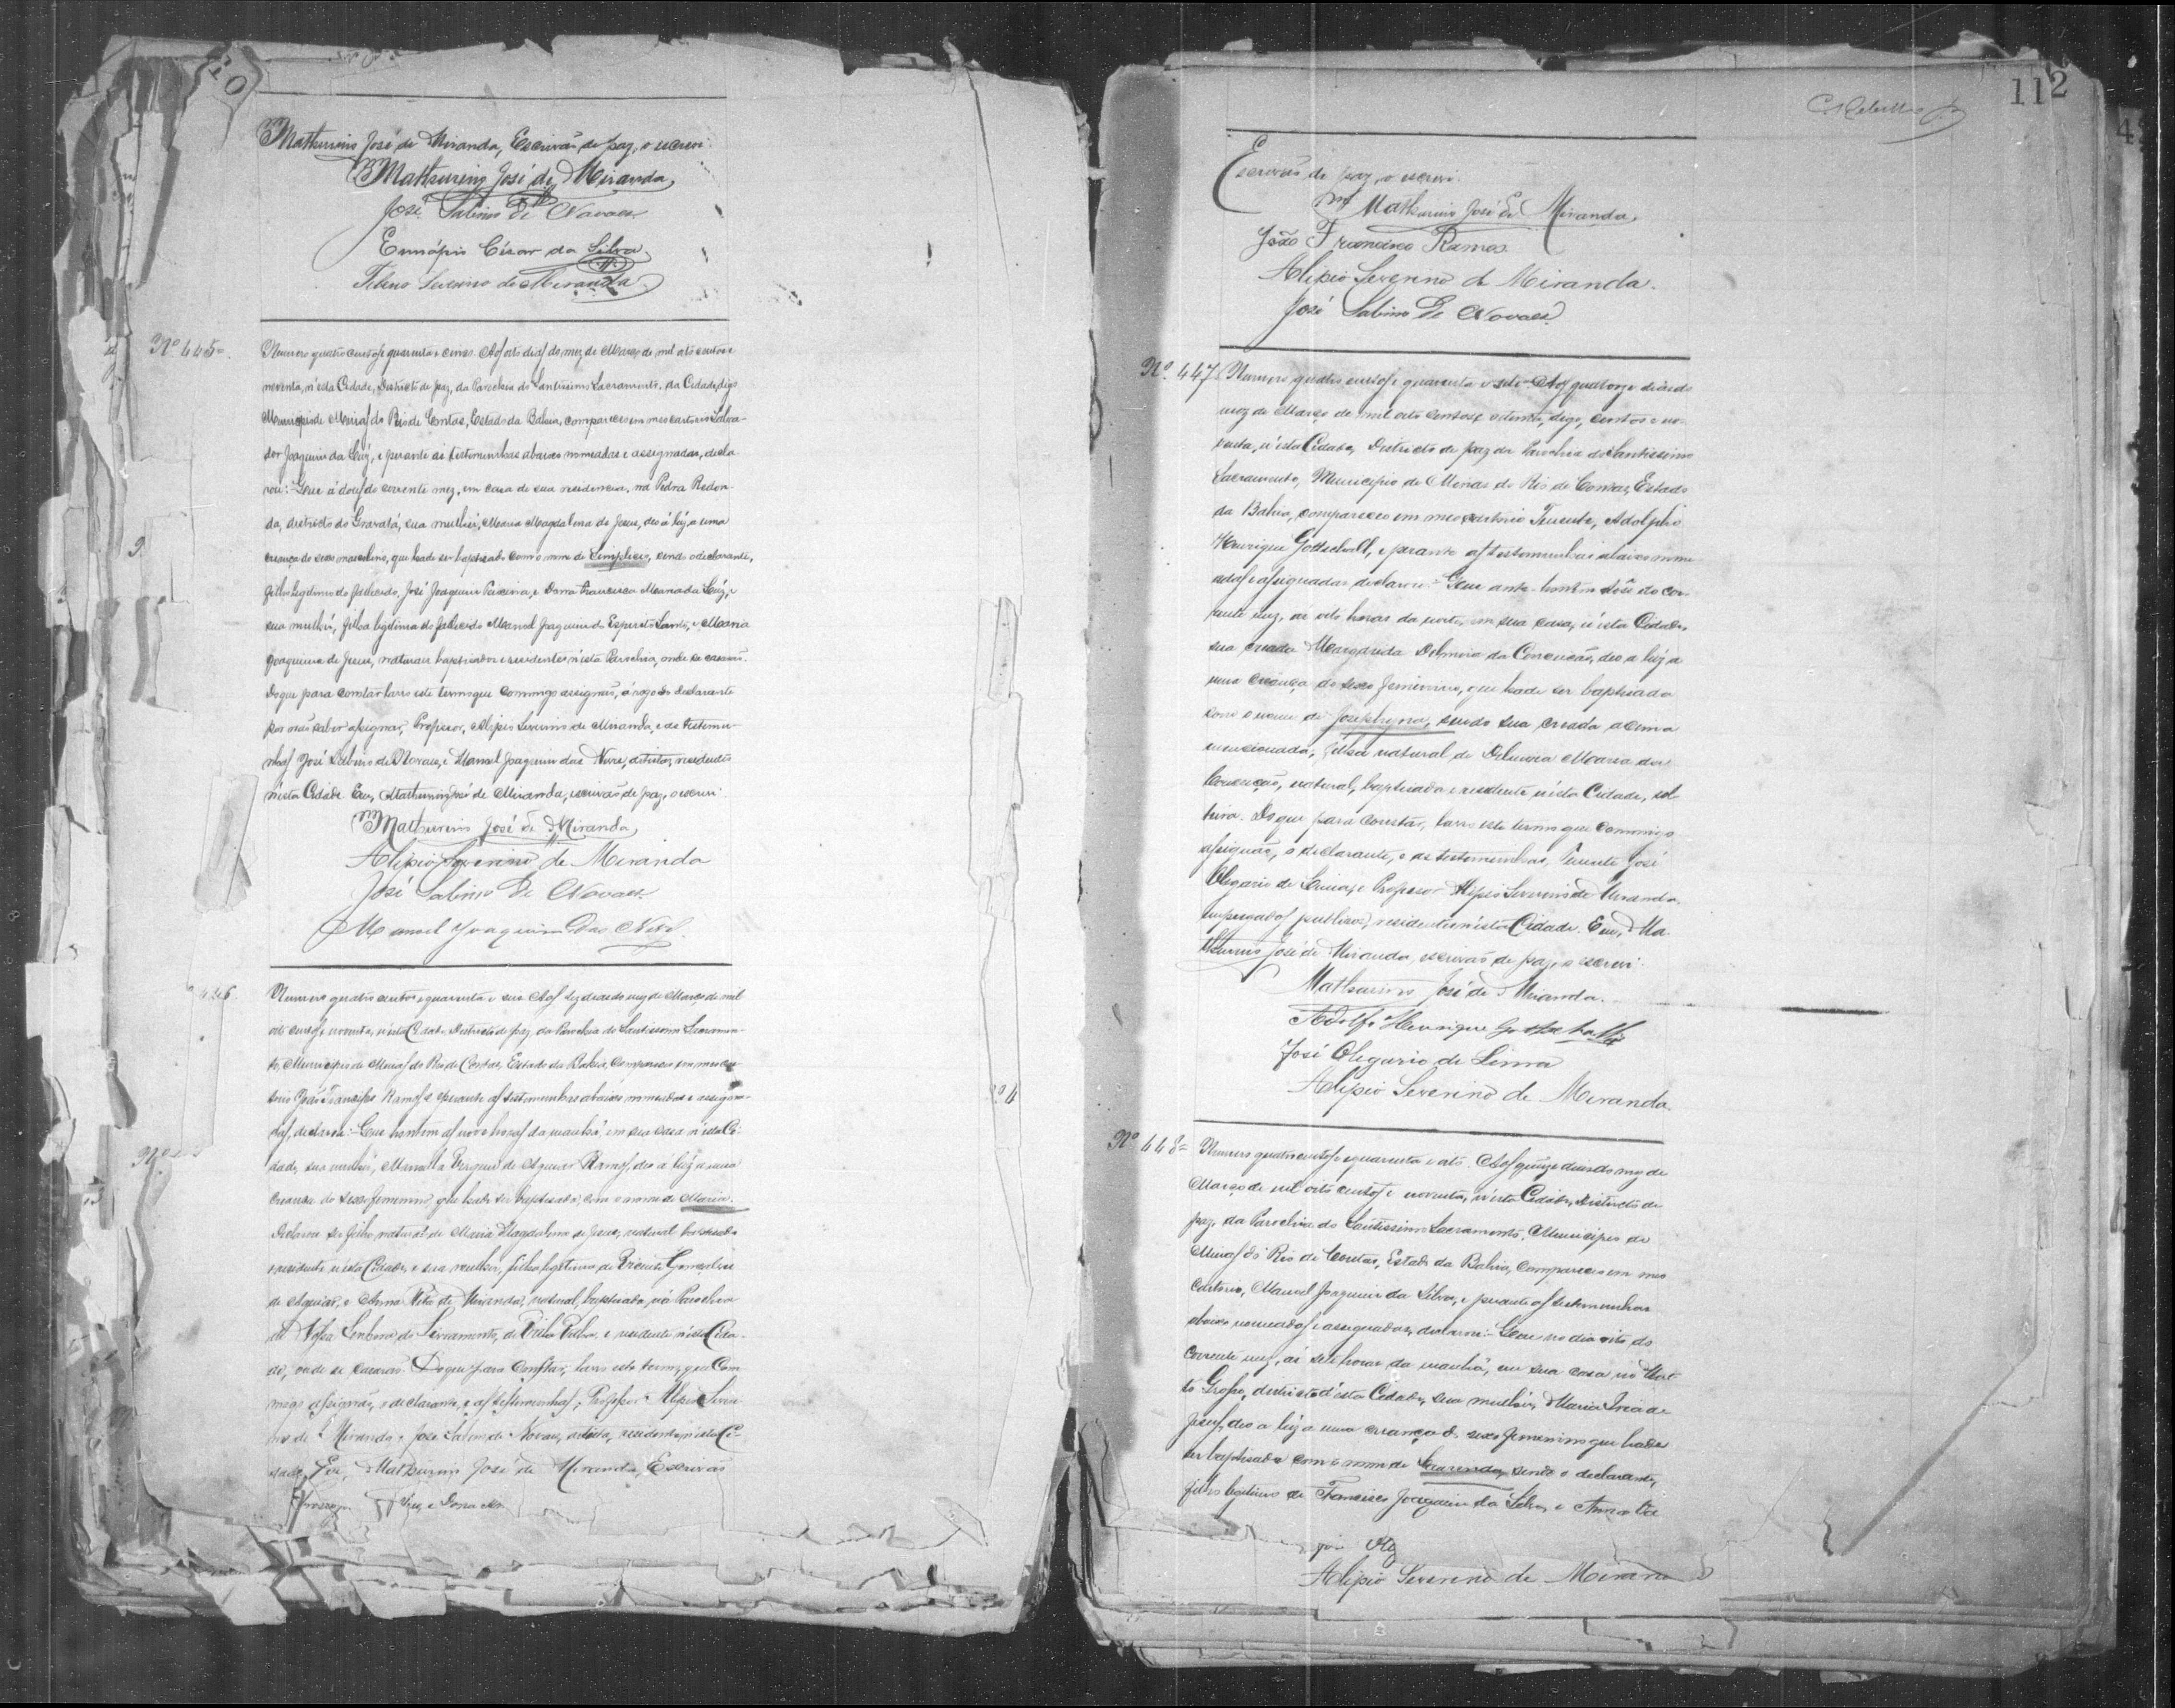 Mathurino José de Miranda, Escrivão de paz, o escrevi.
Mathurino José de Miranda
José Sabino de Novaes
Cesar da Silva
Severino de Miranda
Nº 445=
Numero quatro centos e quarenta e cinco. Aos oito dias do mez de Março de mil oito centos e
noventa, n'esta Cidade, Districto de paz, da Parochia do Santissimo Sacramento, da Cidade, digo
Municipio de Minas do Rio de Contas, Estado da Bahia, compareceo em meo cartorio Salva-
dor Joaquim da Luz, e perante as testemunhas abaixo nomeadas e assignadas, decla-
rou:- Que á dous do corrente mez, em casa de sua residencia, na Pedra Redon-
da, districto do Gravatá, sua mulher, Maria Magdalena de Jesus, deo á luz a uma
creança do sexo masculino, que hade ser baptisado com o nome de Simplicio, sendo o declarante,
filho legitimo do fallecido, José Joaquim Teixeira, e Dona Francisca Maria da Luz, e
sua mulher, filha legitima do fallecido Manoel Joaquim do Espirito Santo, e Maria
Joaquina de Jesus, naturaes baptisados e residentes n'esta Parochia, onde se casarão.
Do que para constar lavro este termo que commigo assignão, á rogo do declarante
por não saber assignar, Professor, Alipio Severino de Miranda, e as testemu-
nhas José Sabino de Novaes, e Manoel Joaquim das Neves, artistas, residentes
n'esta Cidade. Eu, Mathurino José de Miranda, escrivão de paz, o escrevi.
Mathurino José de Miranda
Alipio Severino de Miranda
José Sabino de Novaes
Manoel Joaquim das Neves
446
Numero quatro centos e quarenta e seis. Aos dez dias do mez de Março de mil
oito centos e noventa, n'esta Cidade, Districto de paz da Parochia do Santissimo Sacramen-
to, Municipio de Minas do Rio de Contas, Estado da Bahia, compareceo em meo car-
torio João Francisco Ramos, e perante as testemunhas abaixo nomeadas e assigna-
das, declarou:- Que hontem as nove horas da manhã, em sua casa n'esta Ci-
dade, sua mulher, de Aguiar Ramos, deo á luz a uma
creança do sexo feminino, que hade ser baptisada, com o nome de Maria.
Declarou ser filho natural de Maria Magdalena de Jesus, natural baptisado
e residente n'esta Cidade, e sua mulher, filha legitima de Vicente Gonçalves
de Aguiar, e Anna Rita de Miranda, natural, baptisada, na Parochia
de Nossa Senhora do Livramento, de Villa Velha, e residente n'esta Cida-
de, onde se casarão. Do que para constar, lavro este termo, que com-
migo assignão, o declarante, e as testemunhas, Professor Alipio Severi-
no de Miranda e José Sabino de Novaes, artista, residentes n'esta Ci-
dade. Eu, Mathurino José de Miranda, Escrivão
112
Escrivão de paz, o escrevi.
Mathurino José de Miranda.
João Francisco Ramos
Alipio Severino de Miranda.
José Sabino de Novaes
Nº 447
Numero quatro centos e quarenta e sete. Aos quatorze dias do
mez de Março de mil oito centos e oitenta, digo, centos e no-
venta, n'esta Cidade, Districto de paz da Parochia do Santissimo
Sacramento, Municipio de Minas do Rio de Contas, Estado
da Bahia, compareceo em meo cartorio Tenente, Adolpho
Henrique Gottschall, e perante as testemunhas abaixo nome-
adas e assignadas declarou:- Que ante-hontem dôse do cor-
rente mez, as oito horas da noite, em sua casa, n'esta Cidade,
sua creada Margarida da Conceição, deo a luz a
uma creança do sexo feminino, que hade ser baptisada
com o nome de Josephyna, sendo sua creada acima
mencionada, filha natural de Maria da
Conceição, natural, baptisada e residente n'esta Cidade, sol-
teira. Do que para constar, lavro este termo que commigo
assignão, o declarante, e as testemunhas, Tenente José
Olegario de Lima, e Professor Alipio Severino de Miranda,
empregados publicos, residentes n'esta Cidade. Eu, Ma-
thurino José de Miranda, escrivão de paz, o escrevi.
Mathurino José de Miranda.
Adolfo Henrique Gottschall
José Olegario de Lima
Alipio Severino de Miranda.
Nº 448=
Numero quatro centos e quarenta e oito. Aos quinze dias do mez de
Março de mil oito centos e noventa, n'esta Cidade, Districto de
paz, da Parochia do Santissimo Sacramento, Municipio de
Minas do Rio de Contas, Estado da Bahia, compareceo em meo
cartorio, Manoel Joaquim da Silva, e perante as testemunhas
abaixo nomeadas e assignadas, declarou:- Que no dia oito do
corrente mez, ás sete horas da manhã, em sua casa no Mat-
to Grosso, districto d'esta Cidade, sua mulher, Maria de
Jesus, deo a luz a uma creança do sexo feminino que hade
ser baptisada com o nome de sendo o declarante,
filho legitimo de Francisco Joaquim da Silva, e Anna
Alipio Severino de Miranda